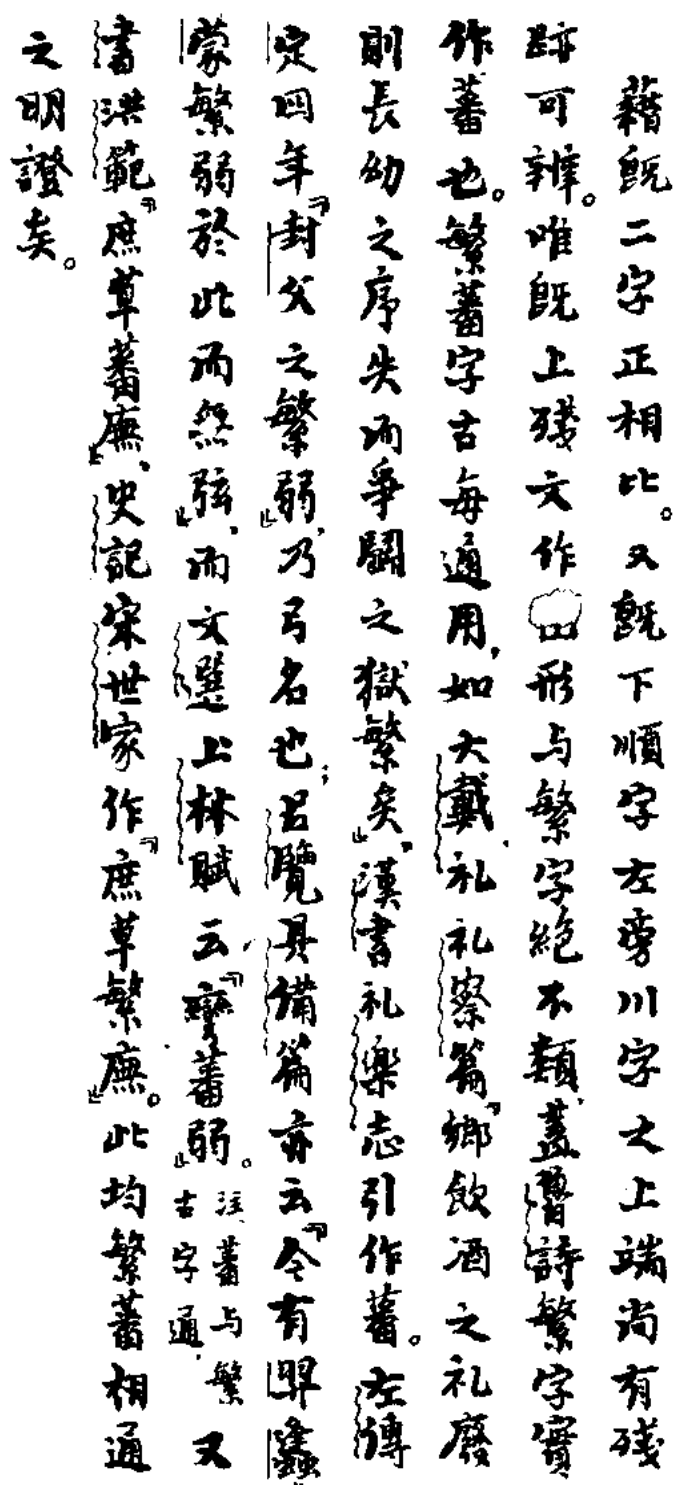 藉旣二字正相比。又旣下順字左旁川字之上端尚有殘
跡可辨。唯旣上殘文作形与繁字絕不類，蓋魯詩繁字實
作蕃也。繁蕃字古每通用，如大戴礼礼察篇『鄉飲酒之礼廢
則長幼之序失而爭鬭之獄繁矣』，漢書礼樂志引作蕃。左傳
定四年『封父之繁弱』，乃弓名也；呂覽具備篇亦云『今有羿蠭
蒙繁弱於此而無弦』，而文選上林賦云『彎蕃弱』。注、蕃与繁古字通，又
書洪範『庶草蕃廡』，史記宋世家作『庶草繁廡』。此均繁蕃相通
之明證矣。